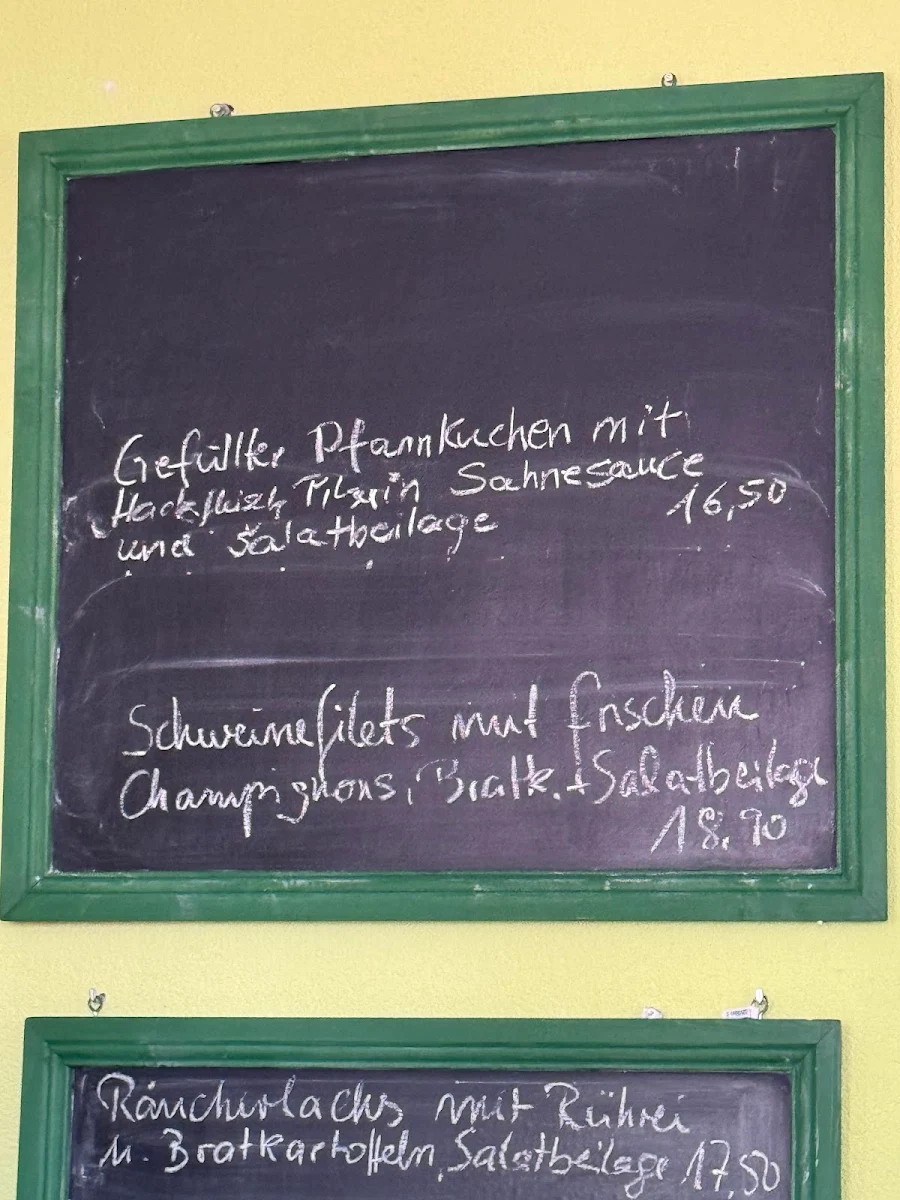 Gefüllter Pfannkuchen mit
Hackfleisch, Pilze in Sahnesauce
16,50
und Salatbeilage
Schweinefilets mit frischen
Champignons, Bratk. + Salatbeilage
18.90
Räucherlachs mit Rührei
u. Bratkartoffeln, Salatbeilage 17,50